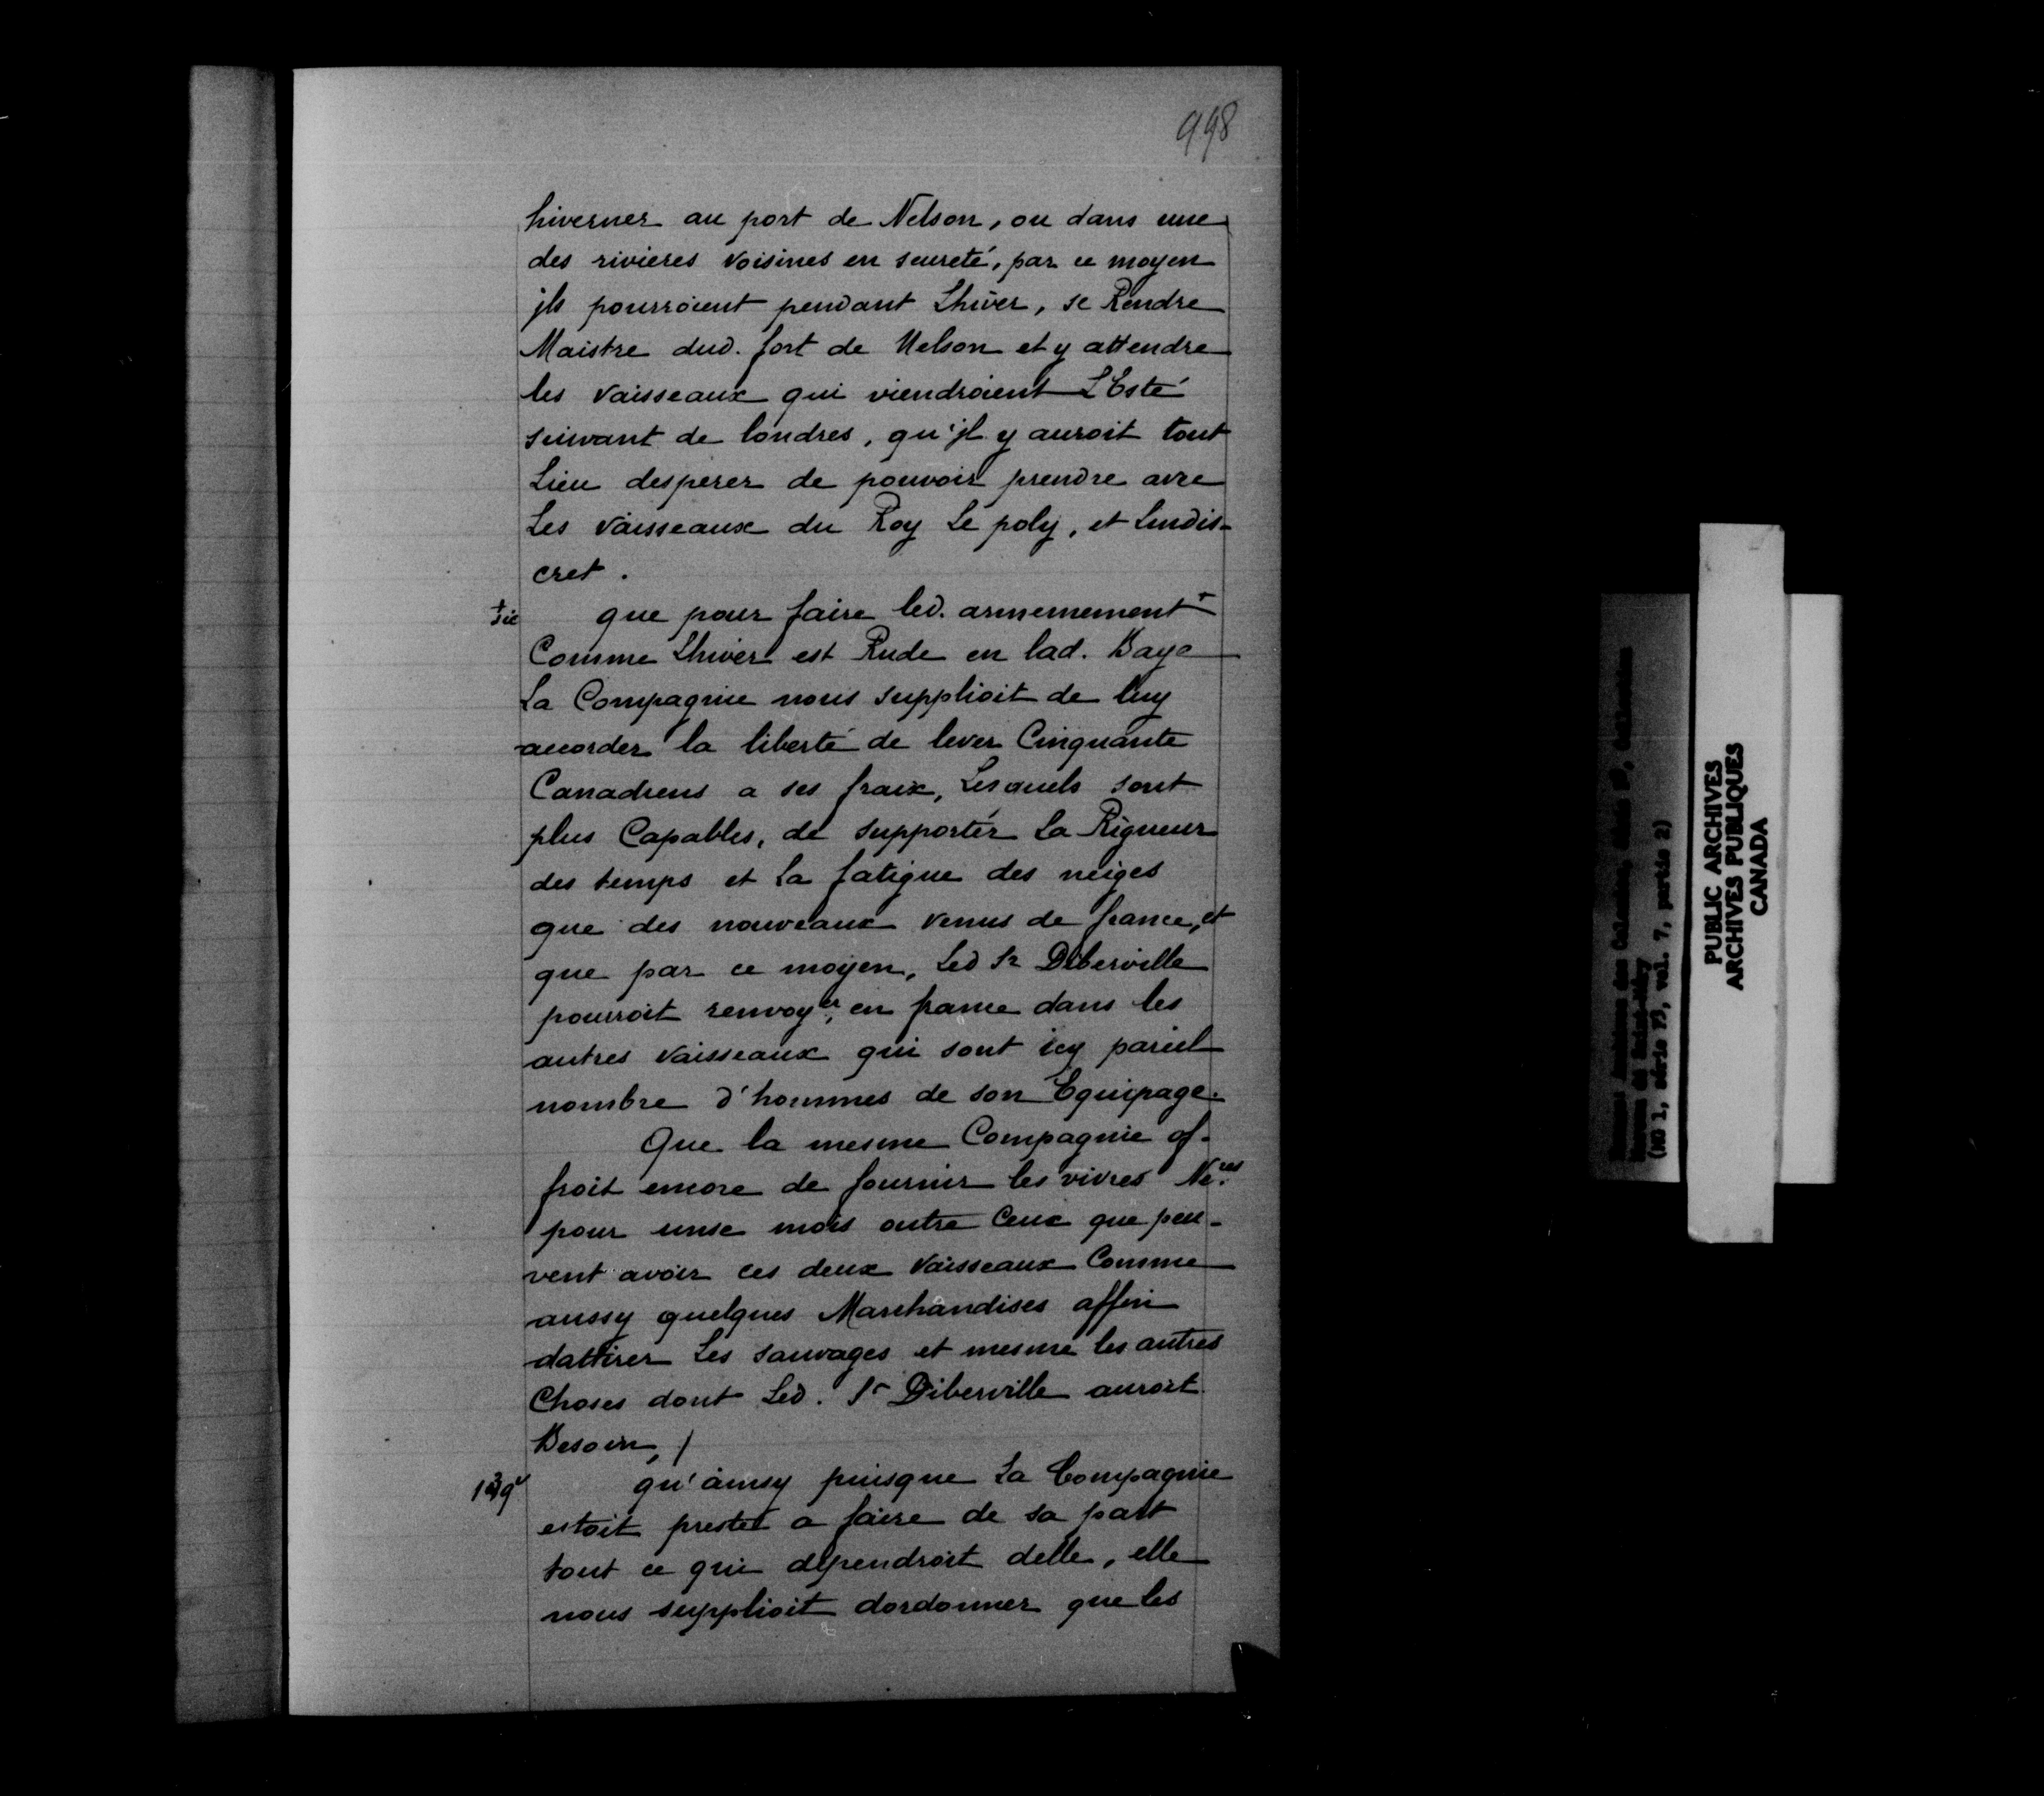 998
hiverner au port de Nelson, ou dans une
des rivieres voisines en seureté, par ce moyen
jls pourroient pendant Lhiver, se Rendre
Maistre dud. fort de Nelson et y attendre
les vaisseaux qui viendroient L'Esté
suivant de londres, qu'jl y auroit tout
Lieu desperer de pouvoir prendre avec
Les vaisseaux du Roy Le poly, et Lindis-
cret.
+ sic
que pour faire led. armemement +
Comme Lhiver est Rude en lad. Baye
La Compagnie nous supplioit de luy
accorder la liberté de lever Cinquante
Canadiens a ses fraix, Lesquels sont
plus Capables, de supporter La Rigueur
des temps et La fatigue des neiges
que des nouveaux venus de france, et
que par ce moyen, Led Sr Diberville
pourroit renvoyer, en france dans les
autres vaisseaux qui sont icy pareil
nombre d'hommes de son Equipage.
Que la mesme Compagnie of-
froit encore de fournir les vivres Nec.res
pour unse mois outre Ceux que peu-
vent avoir ces deux vaisseaux Comme
aussy quelques Marchandises affin
dattirer Les sauvages et mesme les autres
Choses dont Led. Sr Diberville auroit
Besoin, /
139v
qu'ainsy puisque La Compagnie
estoit preste a faire de sa part
tout ce qui dependroit delle, elle
nous supplioit dordonner que les
PUBLIC ARCHIVES
ARCHIVES PUBLIQUES
CANADA
(MG 1, série F3, vol. 7, partie 2)